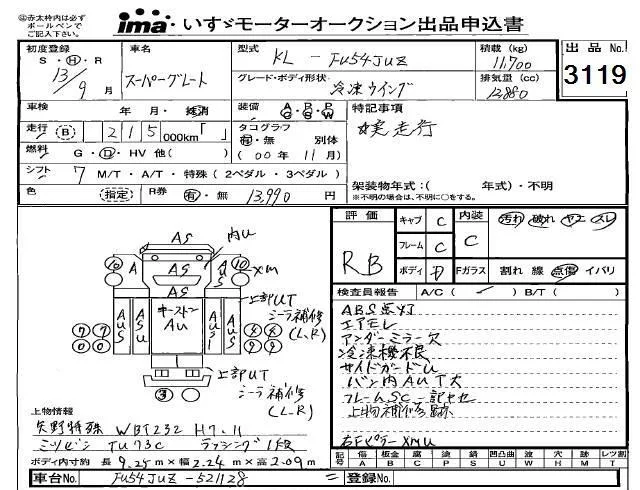 ㊟赤太枠内は必ず
ボールペンで
ご記入下さい。
ima・いすゞモーターオークション出品申込書
初度登録 車名 型式 KL - FU54JUZ 積載 (kg) 11,700 出品No.
S・H・R 13/9月 スーパーグレート グレード・ボディ形状 冷凍ウイング 排気量 (cc) 12880 3119
車検 年 月・検・抹消 装備 A/G P/S P/W 特記事項
走行 (B) 215000km「 」 タコグラフ 有・無 別体 (00年11月) 実走行
燃料 G・D・HV 他( )
シフト 7 M/T・A/T・特殊 (2ペダル・3ペダル) 架装物年式:( 年式)・不明
色 (指定) R券 有・無 13,990円 ※不明の場合は、不明に○をする。
評価 キャブ C 内装 汚れ 破れ ヤエ スレ
RB フレーム C C
ボディ D Fガラス 割れ 線 点傷 イバリ
検査員報告 A/C ( ) B/T ( )
ABS点灯
エアモレ
アンダーミラー欠
冷凍機不良
サイドガードU
バン内AUT大
フレームSC
上物補修跡
右FピラーXMU
AS 内U
A AS AUS XM
AS
上部UT
シーラ補修
(L,R)
AUS AUS キーストン AU AUS AUS
上部UT
シーラ補修
(L-R)
上物情報
矢野特殊 WBT232 H7.11
ミツビシ TU73C ラッシング1段
ボディ内寸約 長 9.25m×幅 2.24m×高 2.09m
記号 傷 A 板金 B 腐 C 塗 P 錆 S 凹凸曲 U 波 W 穴 H 跡 M レツ割 T
車台No. FU54JUZ-521128 登録No.